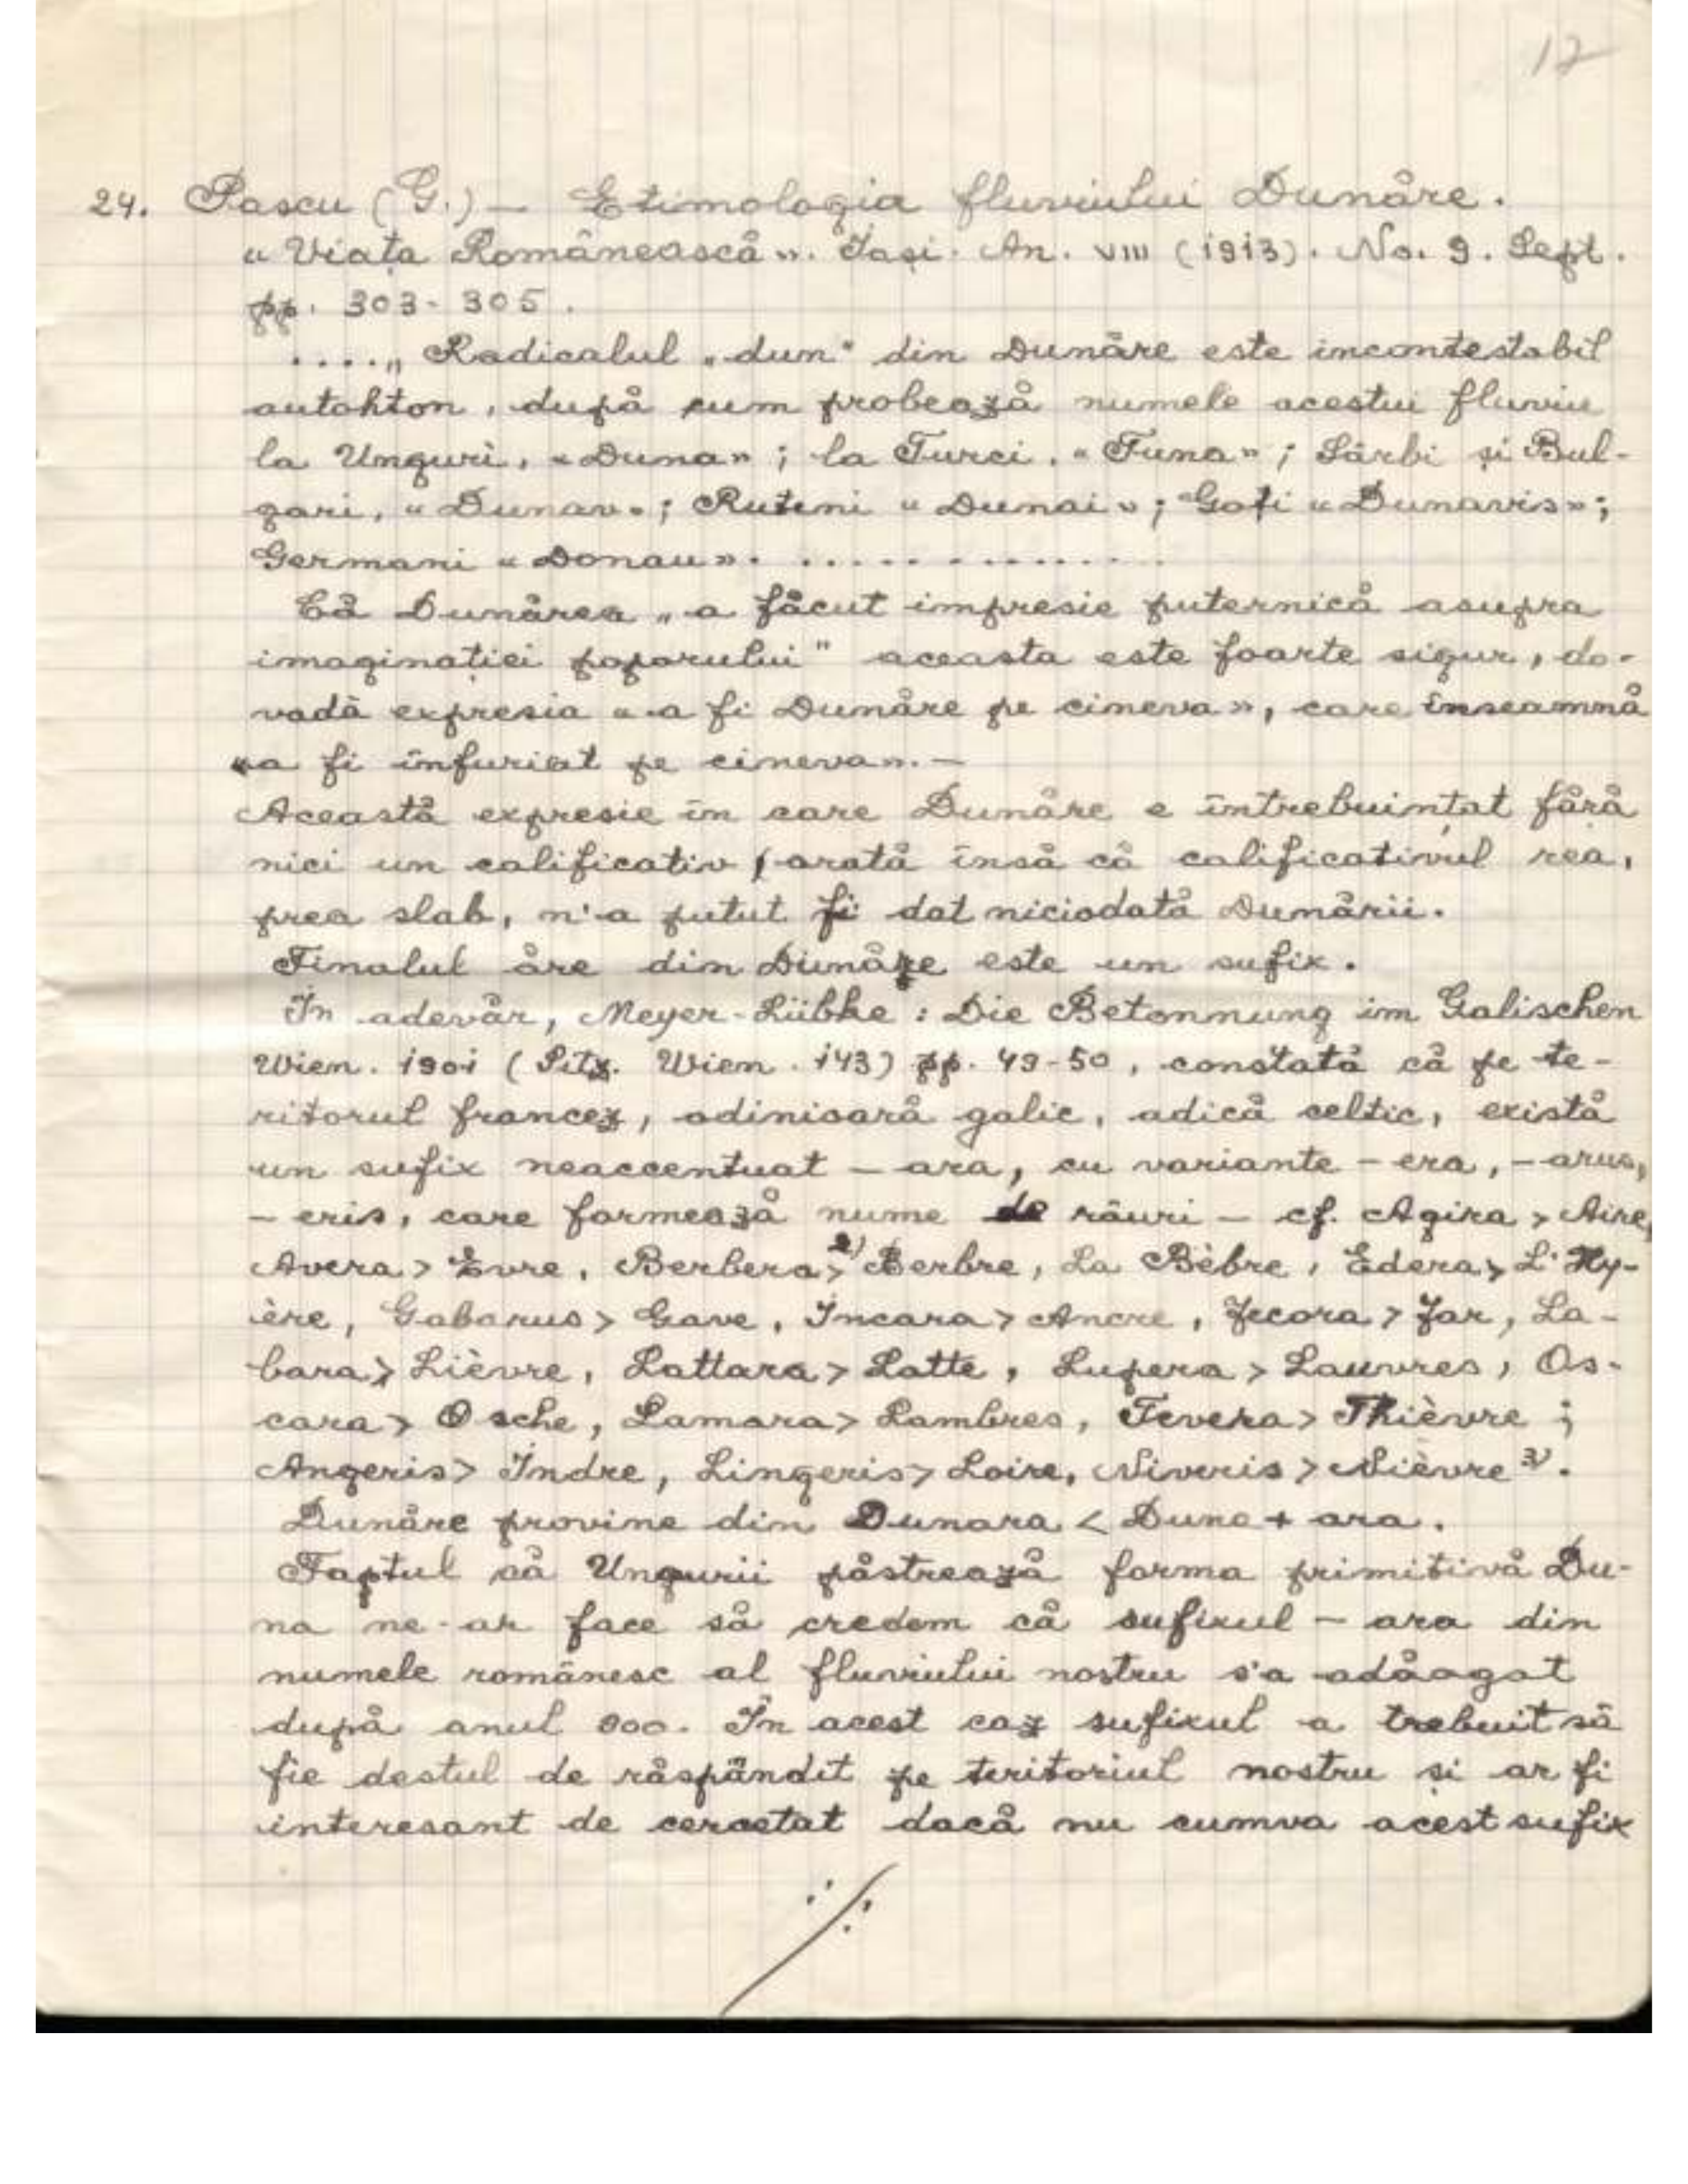 12
24. Pascu (G.) — Etimologia fluviului Dunăre.
« Viața Românească ». Iași. An. VIII (1913). No. 9. Sept.
pp. 303-305.
....„ Radicalul „dun" din Dunăre este incontestabil
autohton, după cum probează numele acestui fluviu
la Unguri, «Duna» ; la Turci, «Tuna» ; Sârbi și Bul-
gari, «Dunav» ; Ruteni «Dunai» ; Goți «Dunavis» ;
Germani «Donau». .............
Că Dunărea „a făcut impresie puternică asupra
imaginației poporului" aceasta este foarte sigur, do-
vadă expresia «a fi Dunăre pe cineva», care înseamnă
«a fi înfuriat pe cineva». —
Această expresie în care Dunăre e întrebuințat fără
nici un calificativ, arată însă că calificativul rea,
prea slab, n'a putut fi dat niciodată Dunării.
Finalul ăre din Dunăre este un sufix.
In adevăr, Meyer-Lübke : Die Betonnung im Galischen
Wien. 1901 (Sitz. Wien. 143) pp. 49-50, constată că pe te-
ritorul francez, odinioară galic, adică celtic, există
un sufix neaccentuat — ara, cu variante — era, — arus,
— eris, care formează nume de râuri — cf. Agira > Aire,
Avera > Evre, Berbera > 2) Berbre, La Bèbre, Edera > L'Hy-
ère, Gabarus > Gave, Incara > Ancre, Jecora > Jar, La-
bara > Lièvre, Lattara > Latte, Lupera > Lauvres, Os-
cara > Osche, Lamara > Lambres, Tevera > Thièvre ;
Angeris > Indre, Lingeris > Loire, Niveris > Nièvre 3).
Dunăre provine din Dunara < Duna + ara.
Faptul că Ungurii păstrează forma primitivă Du-
na ne-ar face să credem că sufixul — ara din
numele românesc al fluviului nostru s'a adăogat
după anul 900. În acest caz sufixul a trebuit să
fie destul de răspândit pe teritoriul nostru și ar fi
interesant de cercetat dacă nu cumva acest sufix
./.